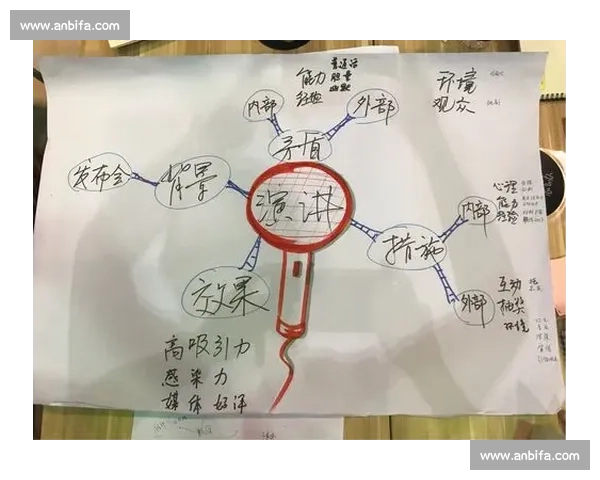 www.anbifa.com
能力
经验
普通话
胆量
幽默
环境
观众
内部
外部
矛盾
发布会
背景
演讲
心理
能力
经验
内部
措施
外部
互动
抽奖
环境
效果
高吸引力
感染力
媒体好评
www.anbifa.com